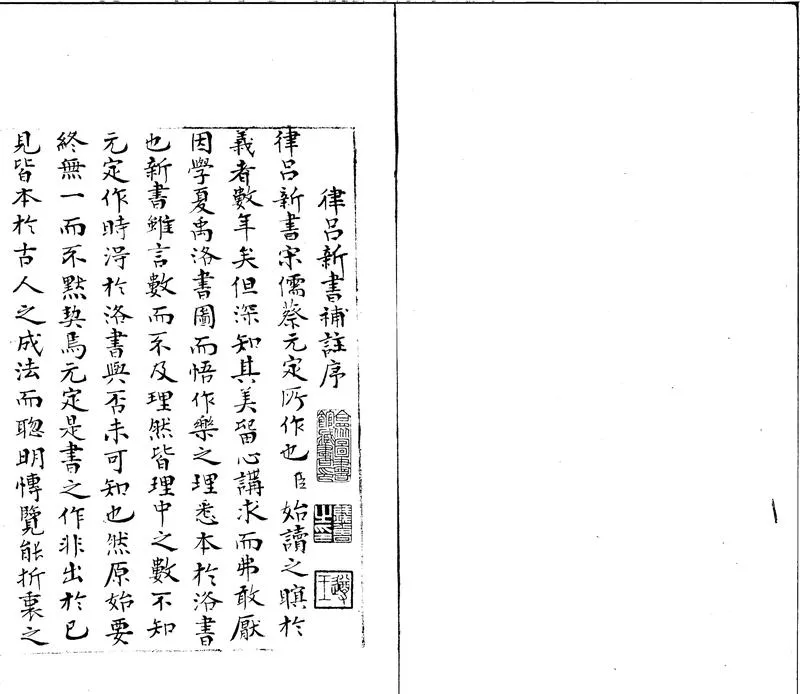 律呂新書補註序
律呂新書宋儒蔡元定所作也臣始讀之瞑於
義者數年矣但深知其美留心講求而弗敢厭
因學夏禹洛書圖而悟作樂之理悉本於洛書
也新書雖言數而不及理然皆理中之數不知
元定作時淂於洛書與否未可知也然原始要
終無一而不黙契焉元定是書之作非出於己
見皆本於古人之成法而聰明慱覽能折衷之